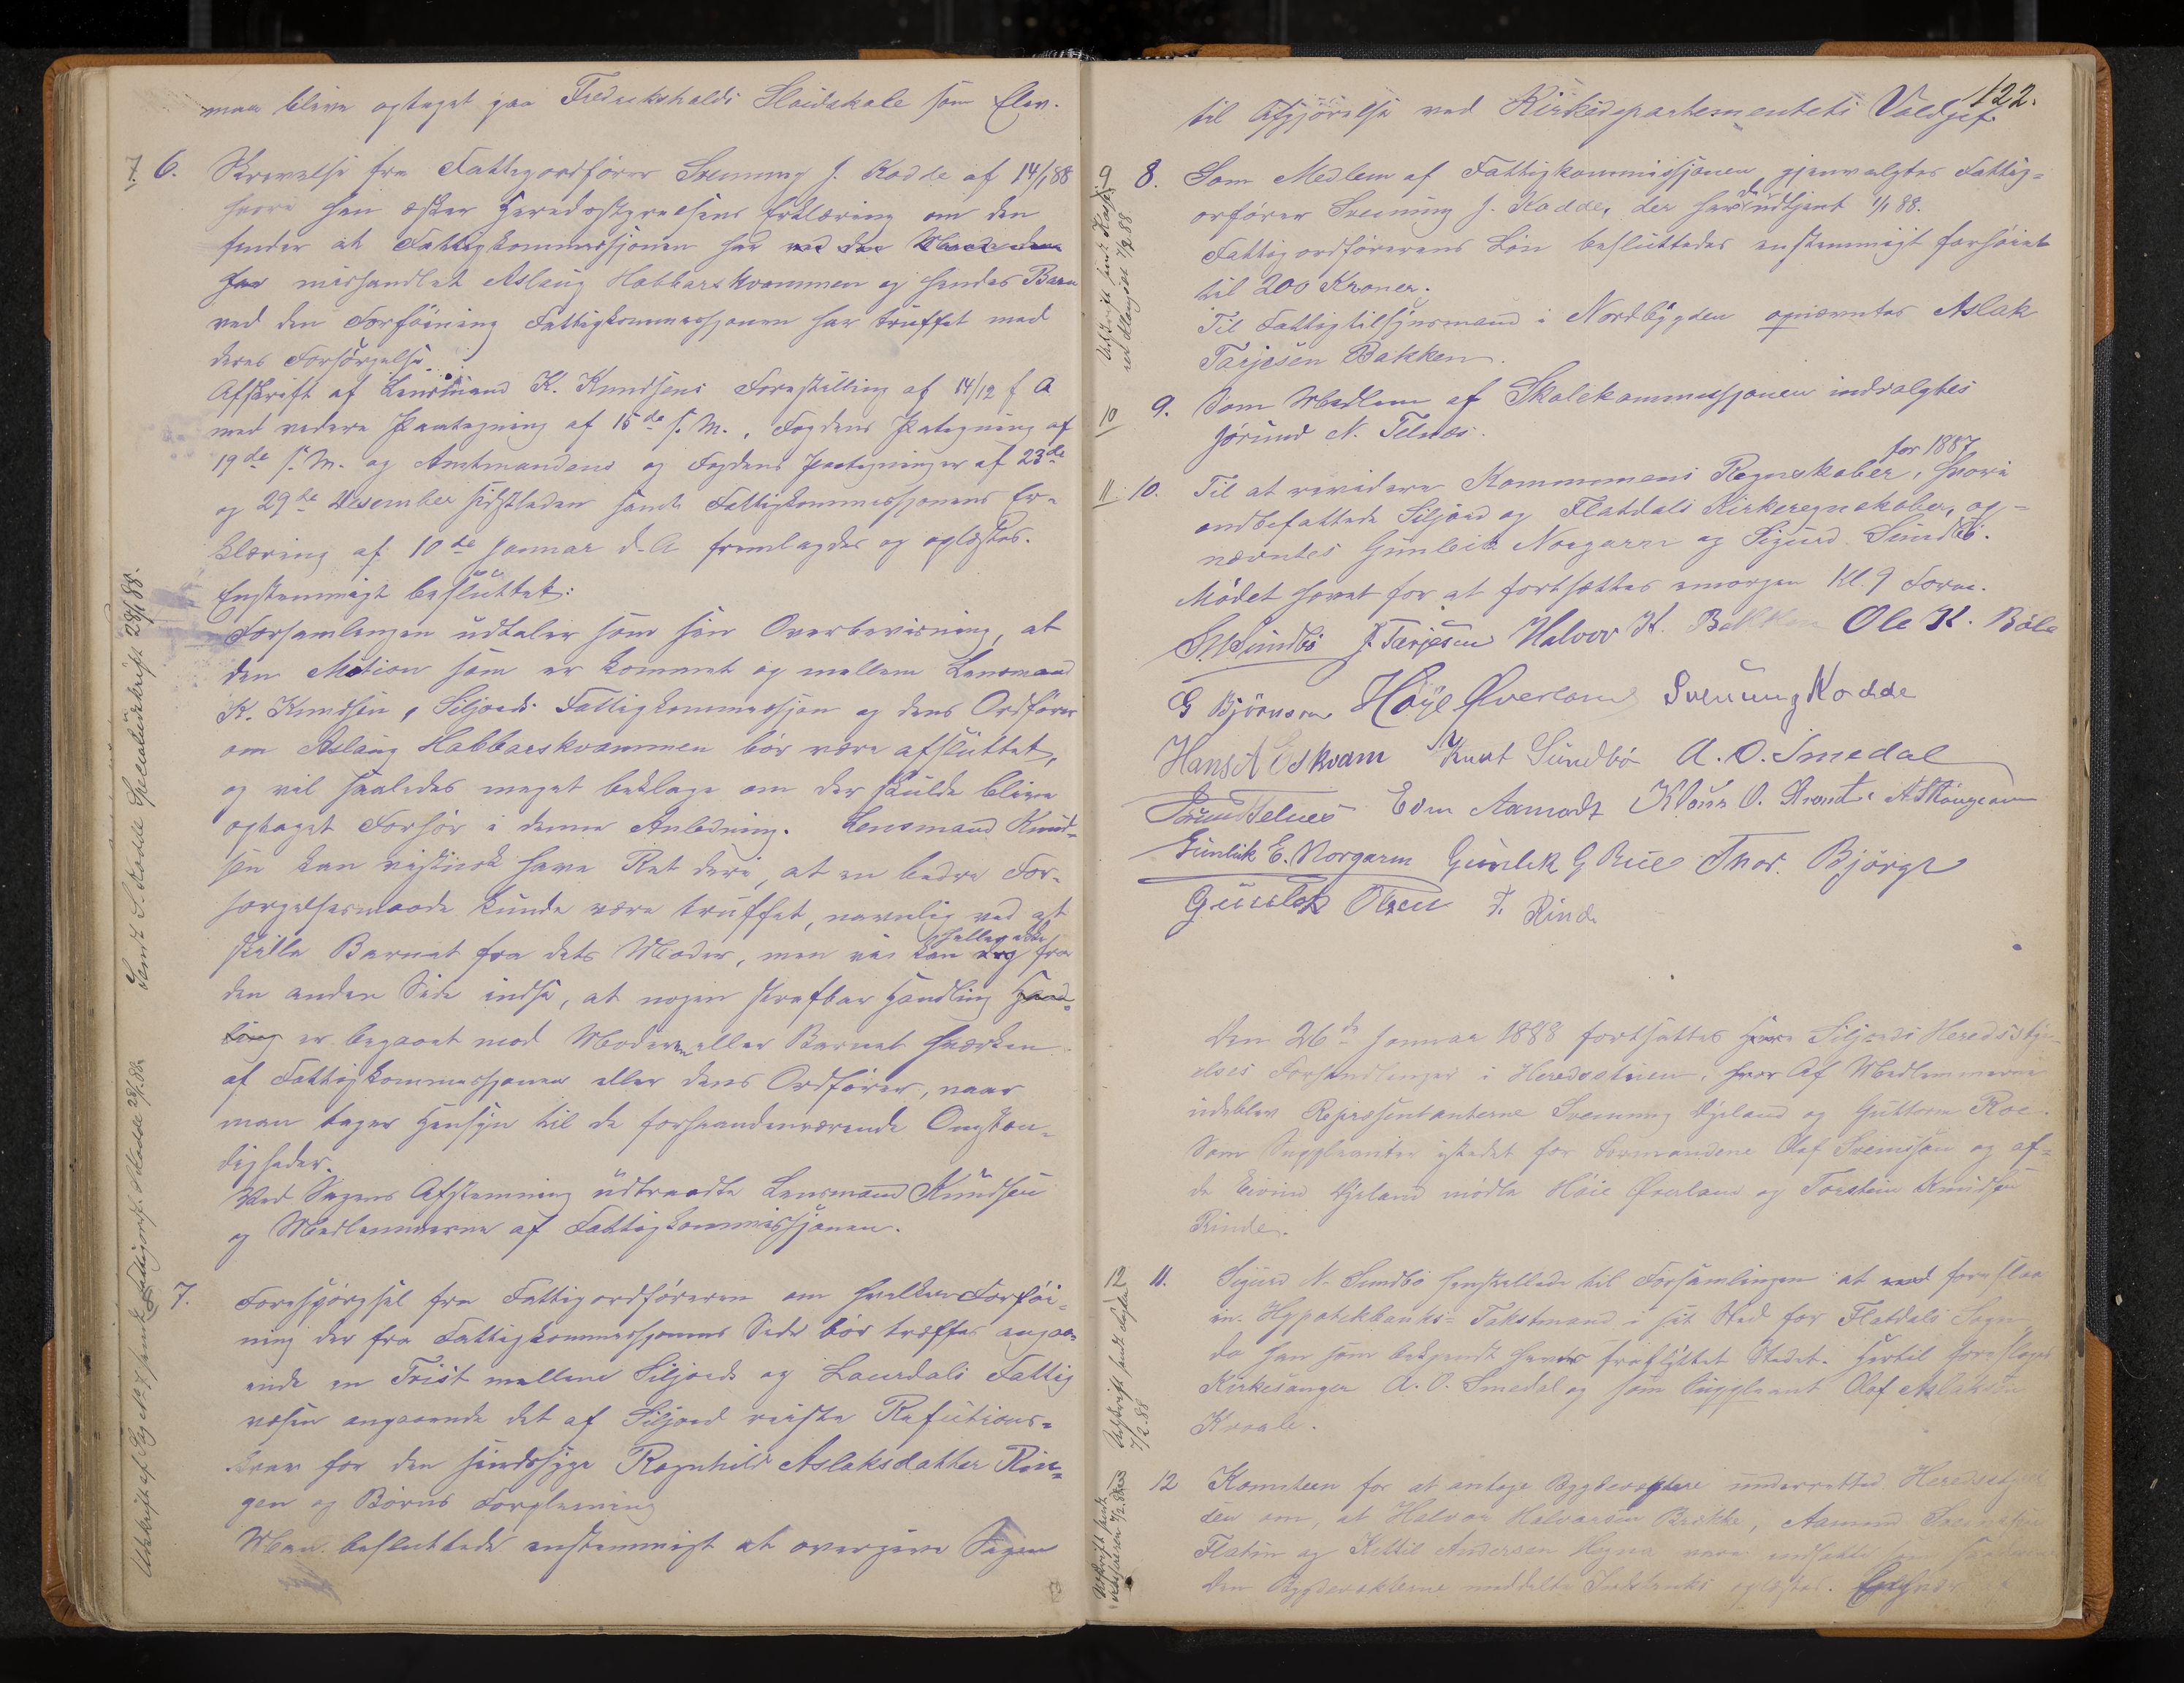 maa blive optaget paa Fredrikshalds Sløidskole som Elev.
7. 6. Skrivelse fra Fattigordfører Svenung J. Kodde af 14/1 88
hvori han æsker Heredsstyrelsens Erklæring om den
finder at Fattigkommissjonen har ved den Maade den
har mishandlet Aslaug Habbarskvammen og hendes Barn
ved den Forføining Fattigkommissjonen har truffet med
deres Forsørgelse.
Afskrift af Lensmand K. Knudsens Forestilling af 14/12 f A
med videre Paategning af 15de s. M., Fogdens Paategning af
19de s. M. og Amtmandens og Fogdens Paategninger af 23de
og 29de Desember sidstleden samt Fattigkommissjonens Er-
klæring af 10de Januar d. A fremlagdes og oplæstes.
Enstemmigt besluttet:
Forsamlingen udtaler som sin Overbevisning, at
den Motion som er kommet op mellem Lensmand
K. Knudsen, Siljords Fattigkommissjon og dens Ordfører
om Aslaug Habbarskvammen bør være afsluttet,
og vil saaledes meget beklage om der skulde blive
optaget Forhør i denne Anledning. Lensmand Knud-
sen kan vistnok have Ret deri, at en bedre For-
sørgelsesmaade kunde være truffet, navnlig ved at
skille Barnet fra dets Moder, men vi kan heller ikke fra
den anden Side indse, at nogen strafbar Handling Hand-
ling er begaaet mod Moderen eller Barnet hverken
af Fattigkommissjonen eller dens Ordfører, naar
man tager Hensyn til de forhaandenværende Omstæn-
digheder.
Ved Sagens Afstemning udtraadte Lensmand Knudsen
og Medlemmerne af Fattigkommissjonen.
7. Forespørgsel fra Fattigordføreren om hvilken Forføi-
ning der fra Fattigkommissjonens Side bør træffes angaa-
ende en Trist mellem Siljords og Laurdals Fattig
væsen angaaende det af Siljord reiste Refusions-
krav for den sindssyge Ragnhild Aslaksdatter Rin-
gen og Børns Forpleining
Man besluttede enstemmigt at overgive Sagen
Sendt S. Kodde Specialudskrift 28/1 88.
Udskrift af Sag No 7 sendt Fattigordf. Kodde 28/1 88.
122.
til Afgjørelse ved Kirkedepartementets Voldgift.
9 8. Som Medlem af Fattigkommissjonen gjenvalgtes Fattig-
orfører Svenung J. Kodde, der havde udtjent 1/1 88.
Fattigordførerens Løn besluttedes enstemmigt forhøiet
til 200 Kroner.
Til Fattigtilsynsmand i Nordbygden opnævntes Aslak
Tarjesen Bakken.
10 9. Som Medlem af Skolekommissjonen indvalgtes
Jørund N. Telnes.
11 10. Til at revidere Kommunens Regnskaber for 1887, hvori
indbefattede Siljord og Flatdals Kirkeregnskaber, op-
nævntes Gunleik Norgarn og Sigurd Sundbø.
Mødet hævet for at fortsættes imorgen Kl. 9 Form.
S. N. Sundbø J. Tarjesen Halvor H. Bakken Ole K. Bøle
G Bjørnson Høye Øverland Svenung Kodde
Hans A Eskvam Knut Sundbø A. O. Smedal
Jørund Telnes Even Aamodt Klaus O.
Gunleik E. Norgarn Gunlek G Rue Thor. Bjørge
Gunlek Olsen T. Rinde
Den 26de Januar 1888 fortsattes Siljords Heredssty-
relses Forhandlinger i Heredsstuen. Af Medlemmerne
udeblev Repræsentanterne Svenung Vjeland og Guttorm Roe.
Som Suppleanter istedet for Formændene Olaf Sveinsson og af-
de Eivind Vjeland mødte Høie Øverland og Torstein Knudsen
Rinde.
12 11. Sigurd N. Sundbø henstillede til Forsamlingen at foreslaa
en Hypotekbanks-Takstmand i sit Sted for Flatdals Sogn
da han som bekjendt havde fraflyttet Stedet. Hertil foresloges
Kirkesanger A. O. Smedal og som Suppleant Olaf Aslaksen
Kraale.
12 Komiteen for at antage Bygdevægtere underrettede Heredsstyrel
sen om, at Halvor Halvorsen Brekke, Aamund
Flatin og Kittil Andersen Hegna var indsatte som
den Bygdevægterne meddelte Instruks oplæstes.
Udskrift sendt
7/2 88